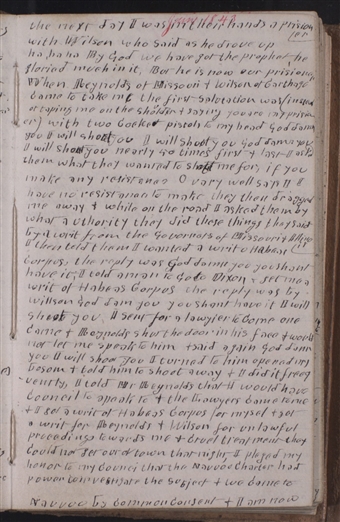 June 1843
the next day I was in their hands a prison
er
with Wilson who said as he drove up
ha, ha, ha My God we have got the prophet he
gloried much in it, But he is now our prisoner,
When Reynolds of Missouri & Wilson of Carthage
came to take me the first salutation was (instead
of taping me on the sholder & saying you are my prison
er) with two Cocked pistols to my head God damn
you I will shoot you I will shoot you God damn you
I will shoot you nearly 50 times first & last I asked
them what they wanted to shoot me for, if you
make any resistance O vary well says I I
have no resistance to make they then dragged
me away & while on the road I asked them by
what authority they did these things they said
by a writ from the Governors of Missouri & Ill
I then told them I wanted a writ of Habeas
Corpus, the reply was God damn you you shant
have it, I told a man to go to Dixon & get me a
writ of Habeas Corpus the reply was by
willson God dam you you shant have it I will
shoot you, I sent for a lawyer to Come one
Came & Reynolds shut the door in his face & would
not let me speak to him & said again God damn
you I will shoot you I turned to him opened my
bosom & told him to shoot away & I did it freq
uently, I told Mr Reynolds that I would have
Council to speak to & the Lawyers Came to me
& I got a writ of Habeas Corpus for myself & got
a writ for Reynolds & Wilson for unlawful
proceedings towards me & cruel treatment they
Could not get out of town that night I pleged my
honor to my Council that the Nauvoo Charter had
power to investigate the subject & we Came to
Nauvoo by common Consent & I am now